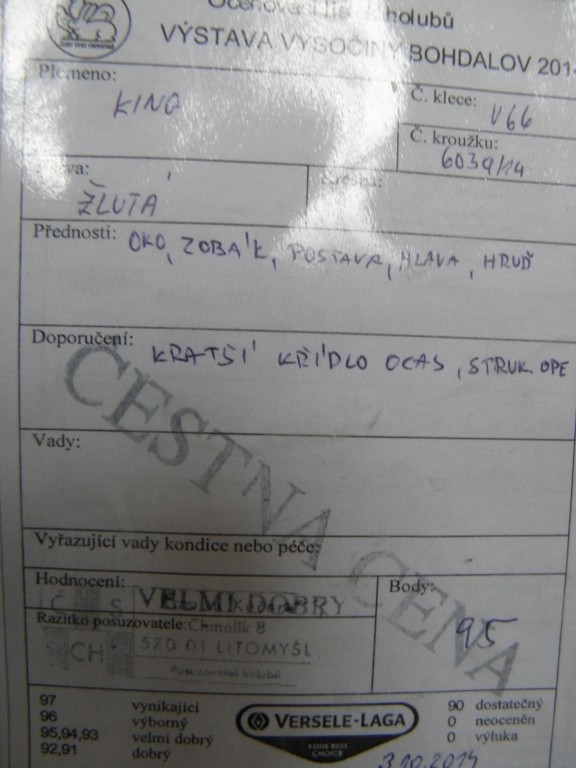 holubů
VÝSTAVA VYSOČINY BOHDALOV 201
Plemeno:
KING
Č. klece:
V66
Č. kroužku:
6039/14
va:
ŽLUTÁ
Přednosti: OKO, ZOBÁK, POSTAVA, HLAVA, HRUĎ
Doporučení: KRATŠÍ KŘÍDLO OCAS, STRUK. OPE
ČESTNÁ CENA
Vady:
Vyřazující vady kondice nebo péče:
Hodnocení: VELMI DOBRÝ
Body: 95
Razítko posuzovatele: Chmelík 8
CH 570 01 LITOMYŠL
Posuzovatel holubů
97 vynikající
96 výborný
95,94,93 velmi dobrý
92,91 dobrý
VERSELE-LAGA
YOUR BEST
CHOICE
90 dostatečný
0 neoceněn
0 výluka
3.10.2014